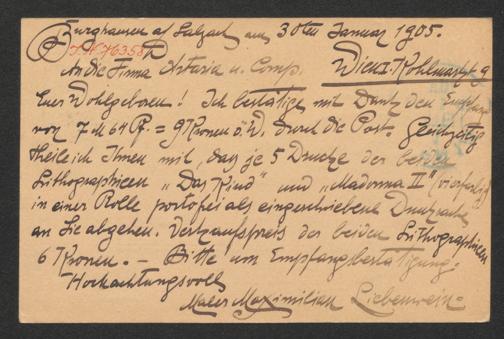 Burghausen a/ Salzach am 30ten Januar 1905.
I.N. 176358
An die Firma Artaria u. Comp. Wien I. Kohlmarkt 9
Euer Wohlgeboren! Ich bestätige mit Dank den Empfang
von 7 M 64 Pf. = 9 Kronen ö. W. durch die Post. Gleichzeitig
theile ich Ihnen mit, dass je 5 Drucke der beiden
Lithographieen „Das Kind" und „Madonna II" (vierfarbig)
in einer Rolle portofrei als eingeschriebene Drucksache
an Sie abgehen. Verkaufspreis der beiden Lithographieen
6 Kronen. – Bitte um Empfangsbestätigung.
Hochachtungsvoll
Maler Maximilian Liebenwein.